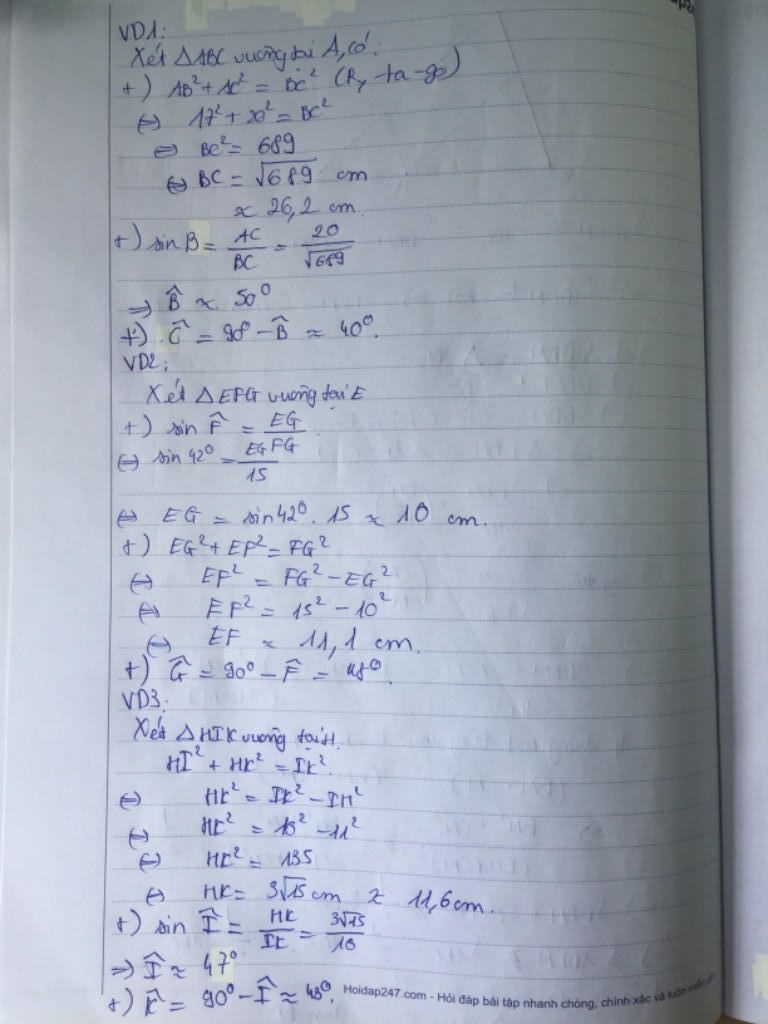 VD1:
Xét △ABC vuông tại A, có:
+) AB² + AC² = BC² (Py-ta-go)
⇔ 17² + 20² = BC²
⇔ BC² = 689
⇔ BC = √689 cm
≈ 26,2 cm.
+) sin B = AC/BC = 20/√689
⇒ B̂ ≈ 50°
+) Ĉ = 90° - B̂ ≈ 40°.
VD2:
Xét △EFG vuông tại E
+) sin F̂ = EG/FG
⇔ sin 42° = EG/15
⇔ EG = sin 42° . 15 ≈ 10 cm.
+) EG² + EF² = FG²
⇔ EF² = FG² - EG²
⇔ EF² = 15² - 10²
⇔ EF ≈ 11,1 cm.
+) Ĝ = 90° - F̂ = 48°.
VD3:
Xét △HIK vuông tại H.
HI² + HK² = IK².
⇔ HK² = IK² - IH²
⇔ HK² = 16² - 11²
⇔ HK² = 135
⇔ HK = 3√15 cm ≈ 11,6 cm.
+) sin Î = HK/IK = 3√15/16
⇒ Î ≈ 47°
+) K̂ = 90° - Î ≈ 43°.
Hoidap247.com - Hỏi đáp bài tập nhanh chóng, chính xác và luôn miễn phí